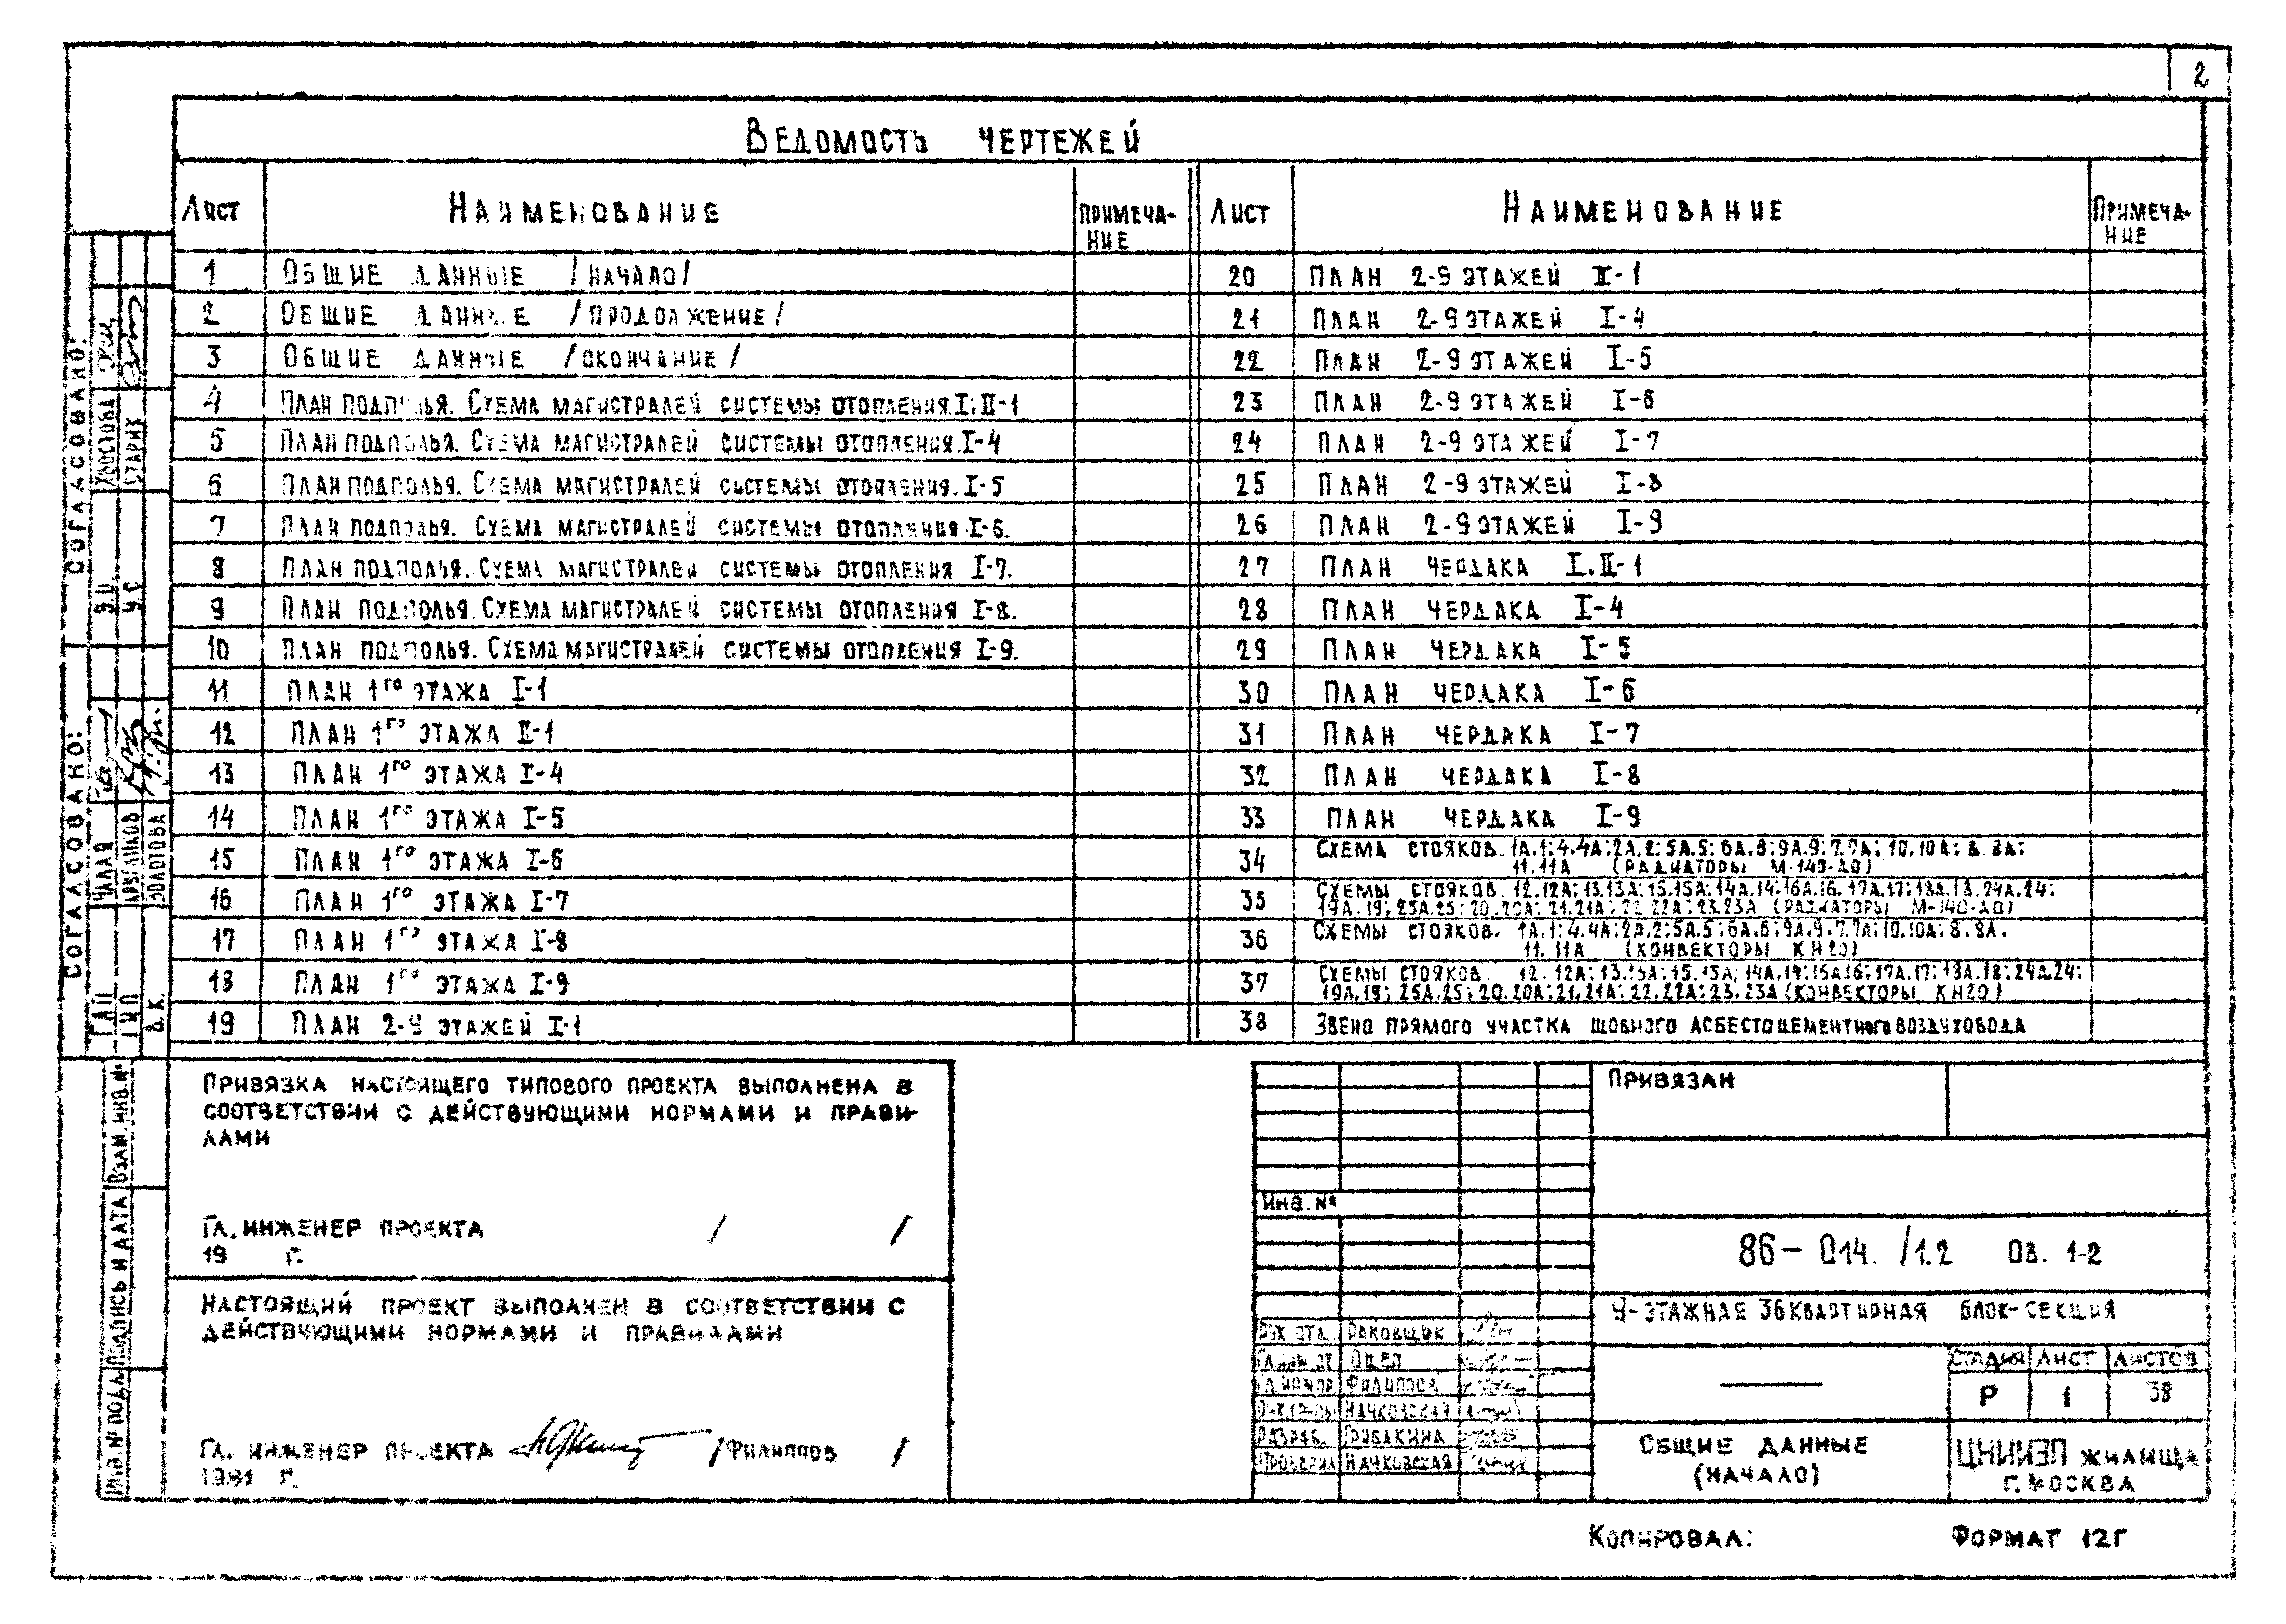 2
Ведомость чертежей
Лист Наименование Примеча-ние Лист Наименование Примеча-ние
1 Общие данные /начало/
2 Общие данные /продолжение/
3 Общие данные /окончание/
4 План подполья. Схема магистралей системы отопления. I; II-1
5 План подполья. Схема магистралей системы отопления. I-4
6 План подполья. Схема магистралей системы отопления. I-5
7 План подполья. Схема магистралей системы отопления I-6.
8 План подполья. Схема магистралей системы отопления I-7.
9 План подполья. Схема магистралей системы отопления I-8.
10 План подполья. Схема магистралей системы отопления I-9.
11 План 1го этажа I-1
12 План 1го этажа II-1
13 План 1го этажа I-4
14 План 1го этажа I-5
15 План 1го этажа I-6
16 План 1го этажа I-7
17 План 1го этажа I-8
18 План 1го этажа I-9
19 План 2-9 этажей I-1
20 План 2-9 этажей II-1
21 План 2-9 этажей I-4
22 План 2-9 этажей I-5
23 План 2-9 этажей I-6
24 План 2-9 этажей I-7
25 План 2-9 этажей I-8
26 План 2-9 этажей I-9
27 План чердака I.II-1
28 План чердака I-4
29 План чердака I-5
30 План чердака I-6
31 План чердака I-7
32 План чердака I-8
33 План чердака I-9
34 Схема стояков. 1А.1; 4.4А; 2А.2; 5А.5; 6А.6; 9А.9; 7.7А; 10.10А; 8.8А;
11.11А (радиаторы М-140-АО)
35 Схемы стояков. 12.12А; 13.13А; 15.15А; 14А.14; 16А.16. 17А.17; 18А.18. 24А.24;
19А.19; 25А.25; 20.20А; 21.21А; 22.22А; 23.23А (радиаторы М-140-АО)
36 Схемы стояков. 1А.1; 4.4А; 2А.2; 5А.5; 6А.6; 9А.9. 7.7А; 10.10А; 8.8А.
11.11А (конвекторы КН20)
37 Схемы стояков. 12.12А; 13.13А; 15.15А; 14А.14; 16А.16; 17А.17; 18А.18; 24А.24;
19А.19; 25А.25; 20.20А; 21.21А; 22.22А; 23.23А (конвекторы КН20)
38 Звено прямого участка шовного асбестоцементного воздуховода
Согласовано:
Хвостова
Старих
Э.О.
У.С
Согласовано:
Чалая
Круглików
Золотова
ГАП
ГИП
А.К.
Взам. инв. №
Подпись и дата
Инв. № подл.
Привязка настоящего типового проекта выполнена в
соответствии с действующими нормами и прави-
лами
Гл. инженер проекта / /
19 г.
Настоящий проект выполнен в соответствии с
действующими нормами и правилами
Гл. инженер проекта /Филиппов /
1981 г.
Привязан
Инв. №
86-014./1.2 ОВ. 1-2
9-этажная 36квартирная блок-секция
Рук. отд. Раковщик
Ощеп
Филиппов
Начковская
Разраб. Грибакина
Проверил Начковская
Стадия Лист Листов
Р 1 38
Общие данные
(начало)
ЦНИИЭП жилища
г. Москва
Копировал: Формат 12Г